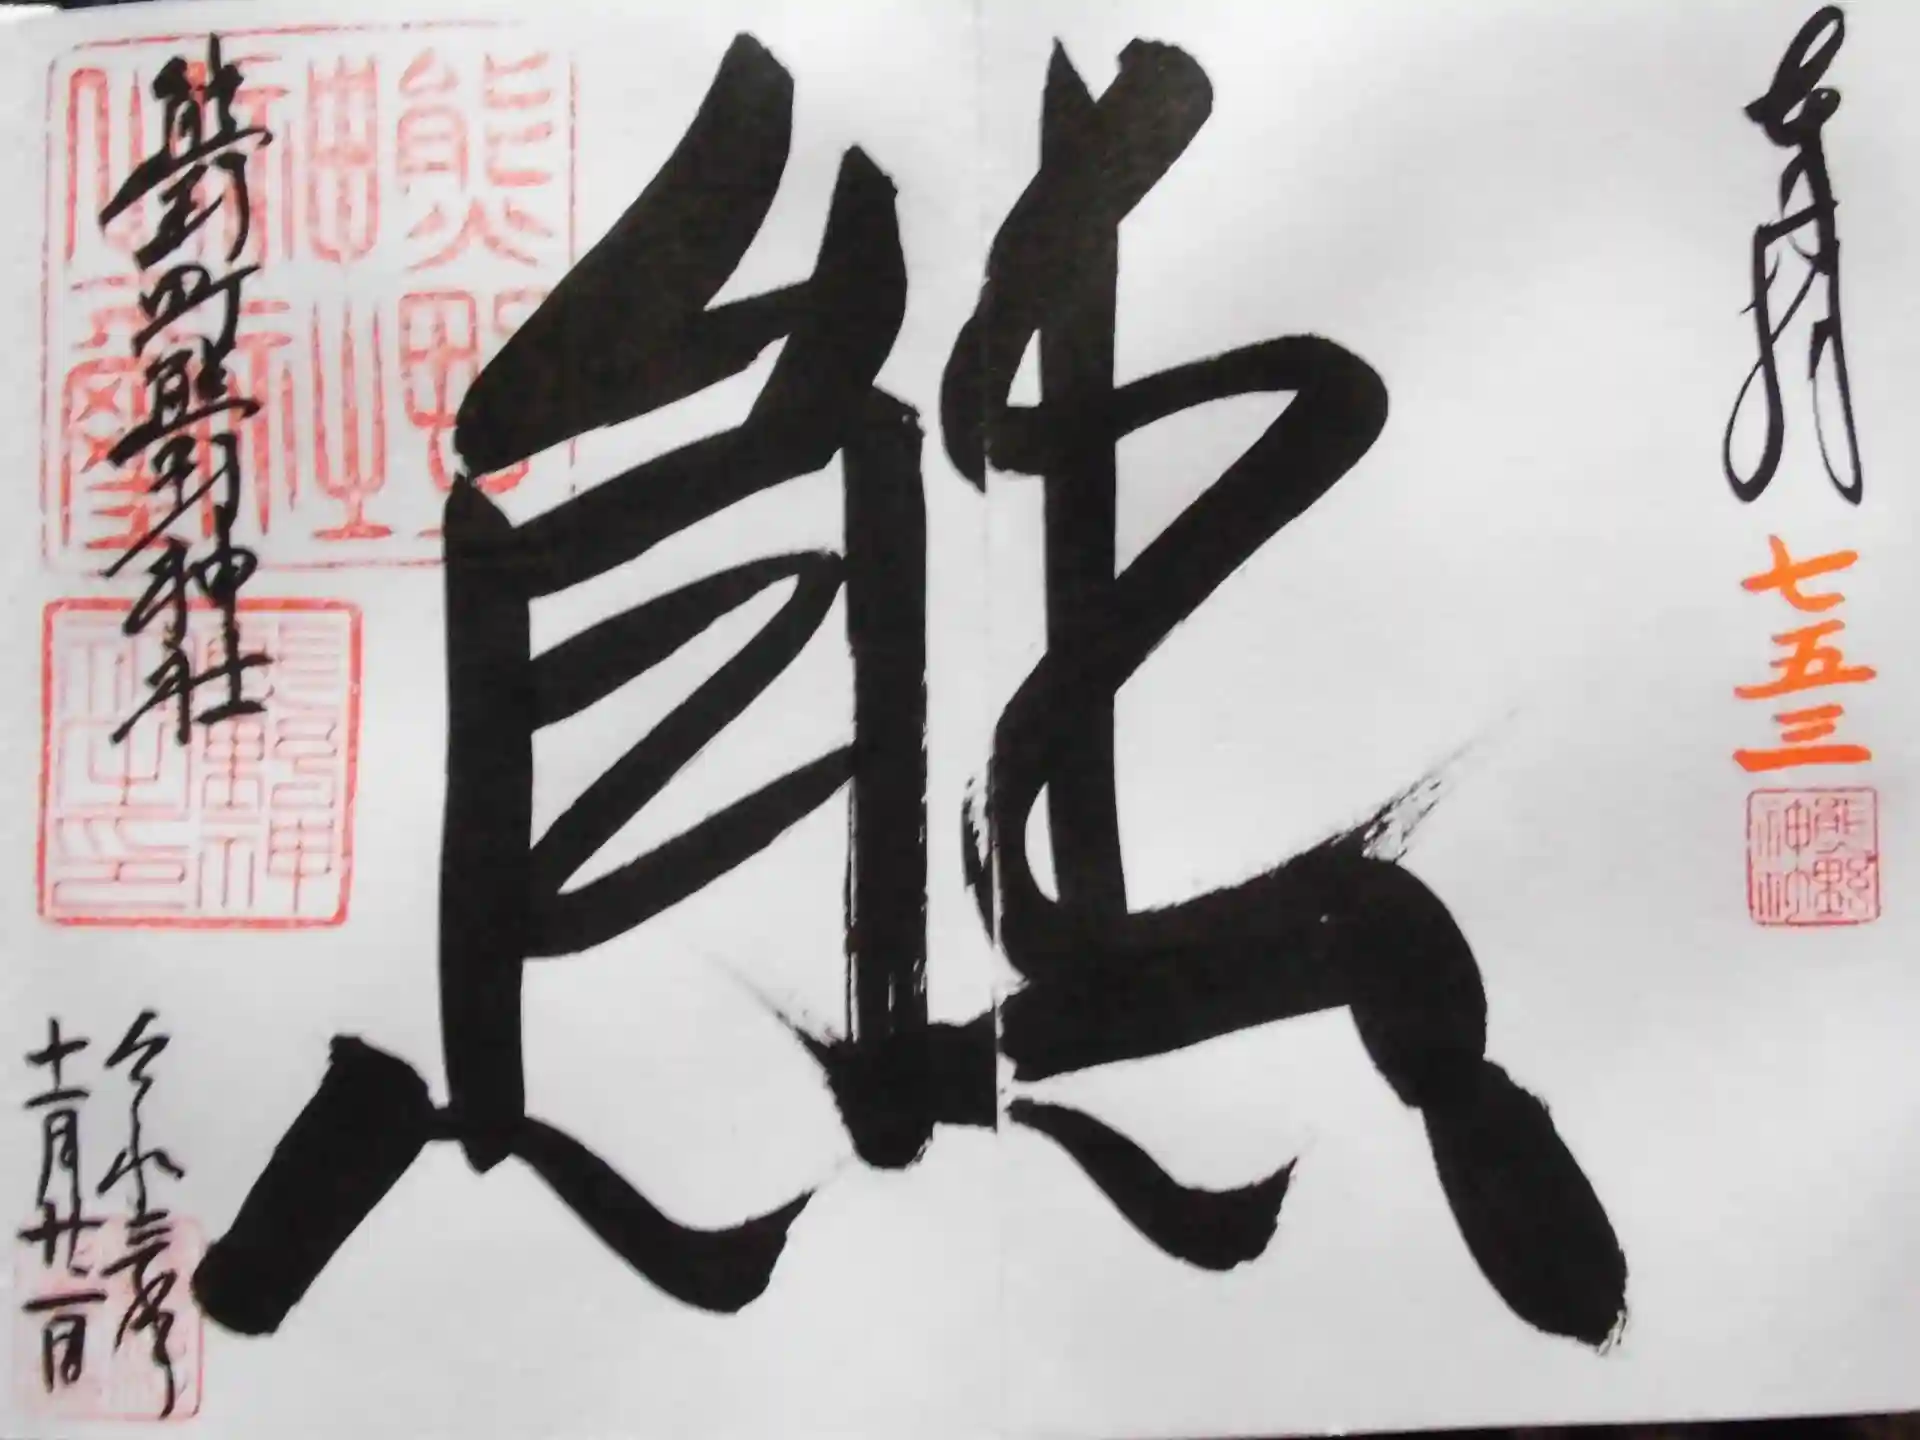 奉拝
七五三
熊野神社
熊
熊野町熊野神社
熊野神社之印
令和三年
十一月廿一日